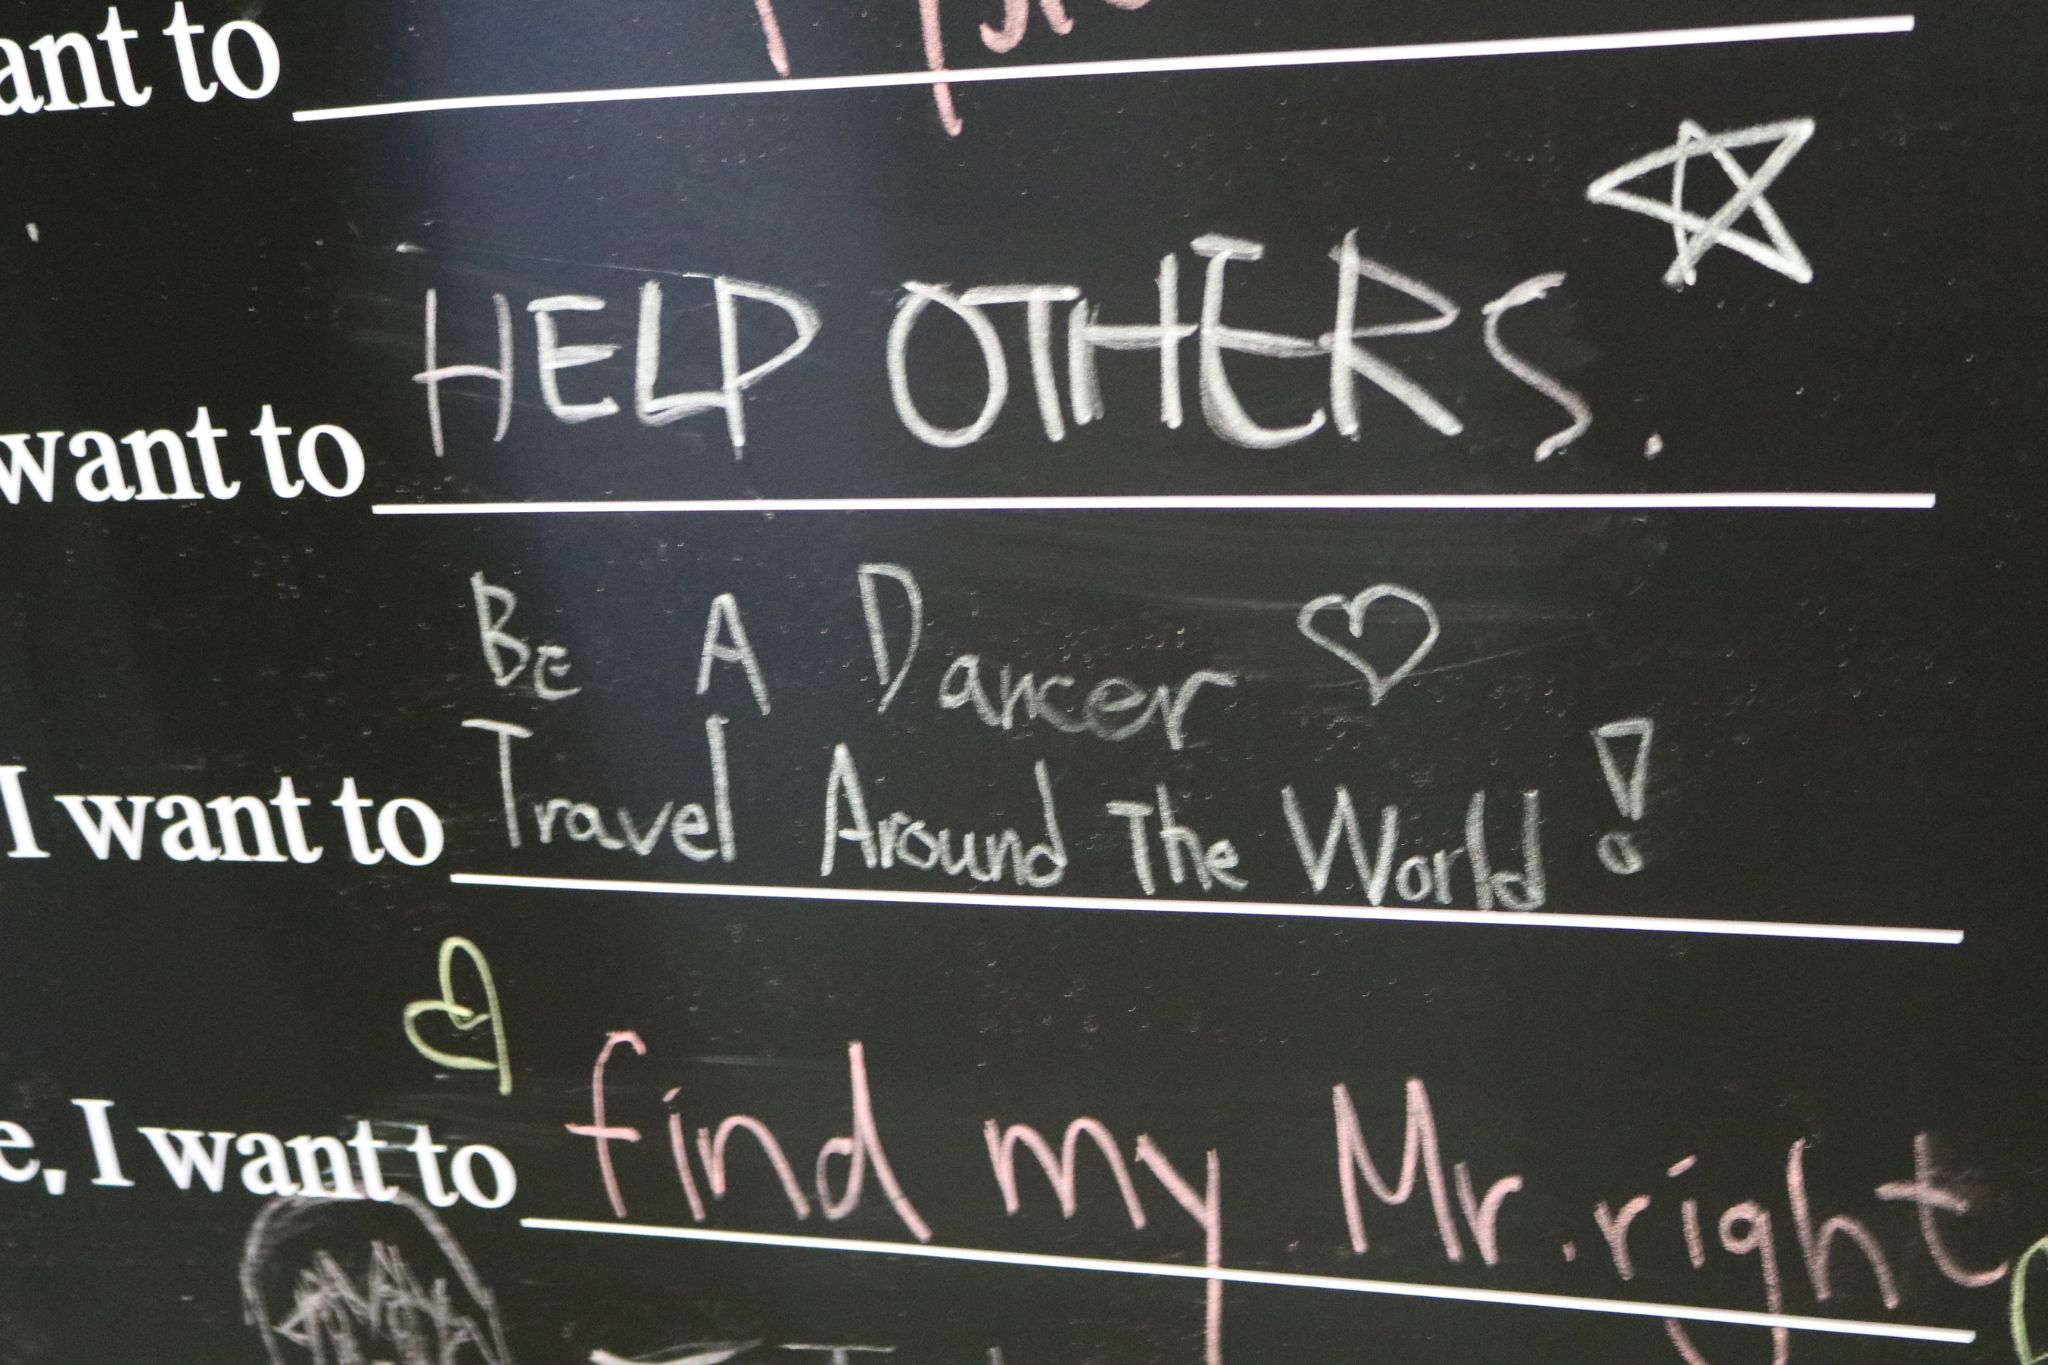 want to
want to HELP OTHERS.
Be A Dancer
I want to Travel Around The World!
e, I want to find my Mr. right